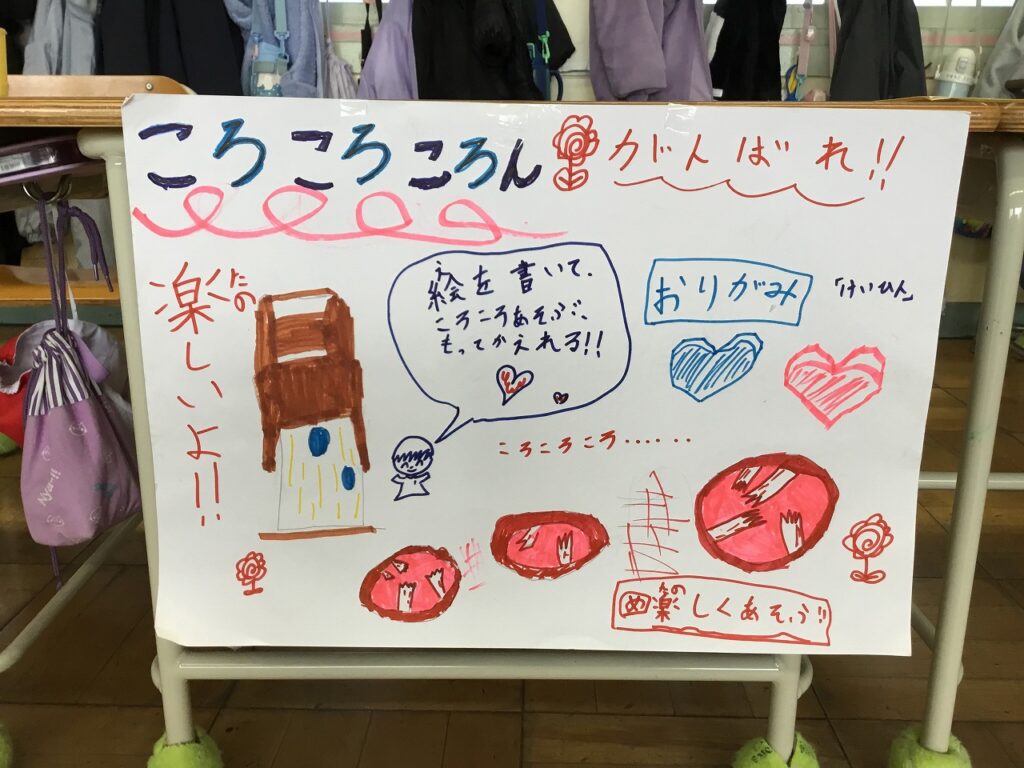 ころころころん
がんばれ!!
楽しいよ!!
たの
絵を書いて、
え
ころころあそぶ、
もってかえれる!!
おりがみ
「けいひん」
ころころころ……
め楽しくあそぼう!!
たの
Nya-!!